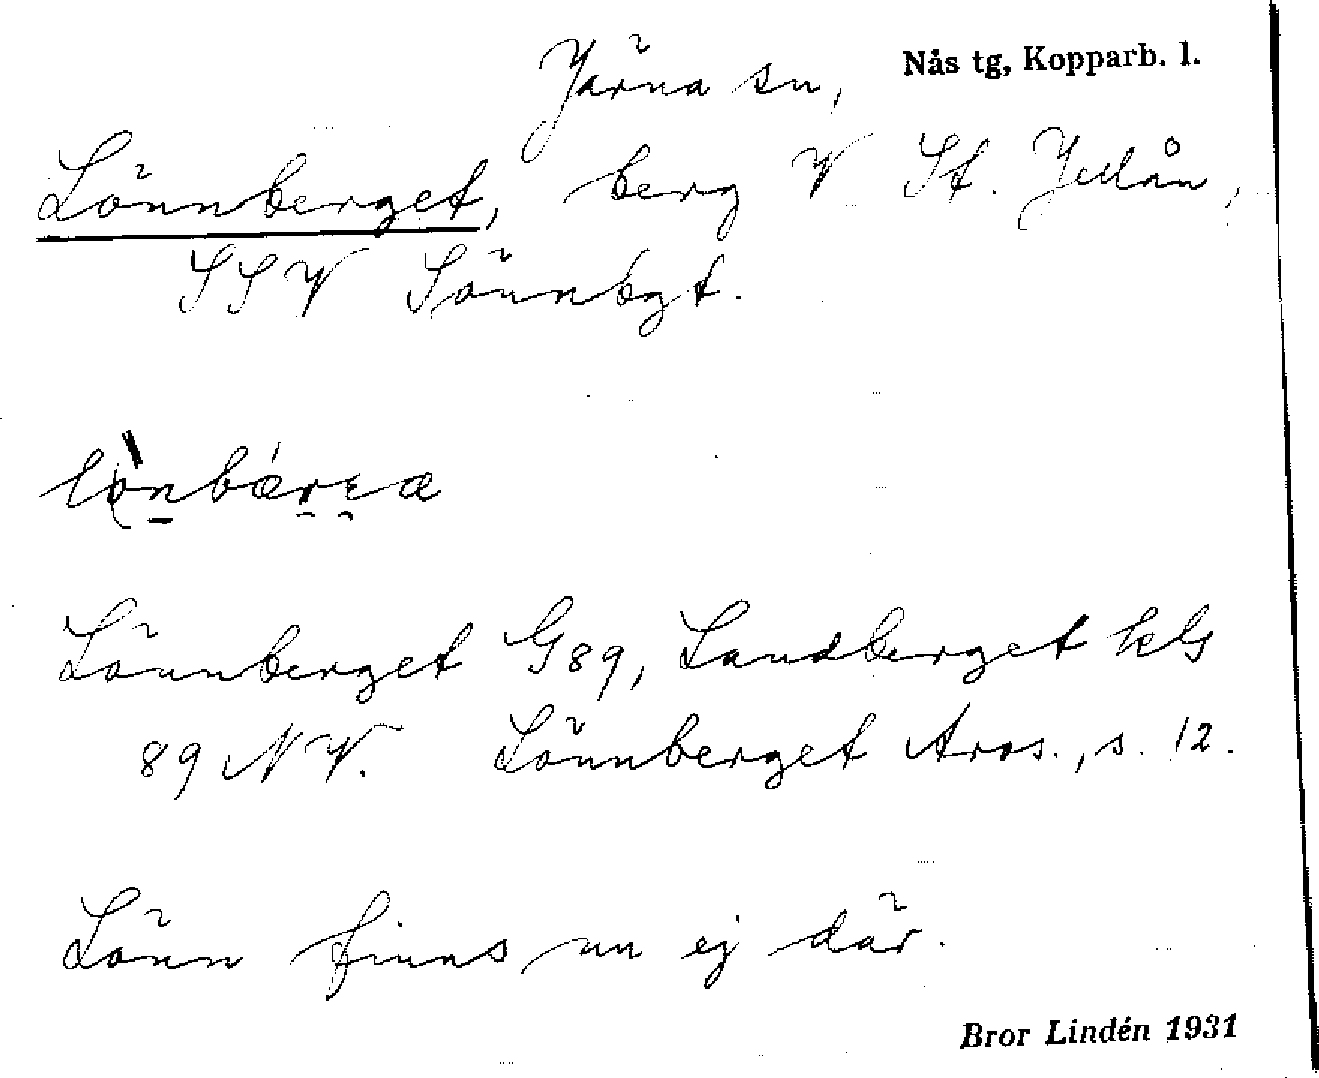 Järna sn, Nås tg, Kopparb. l.
Lönnberget, berg V St. Jellån,
SSV Sönnbgt.
Lönnberget G89, Landberget kG
89 NV. Lönnberget Aros., s. 12.
Lönn finns nu ej där.
Bror Lindén 1931